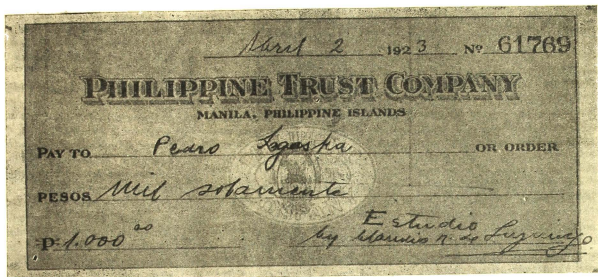 April 2 1923 Nº 61769
PHILIPPINE TRUST COMPANY
MANILA, PHILIPPINE ISLANDS
PAY TO Pedro OR ORDER
PESOS Mil solamente
₱ 1.000 00
Estudio
by de